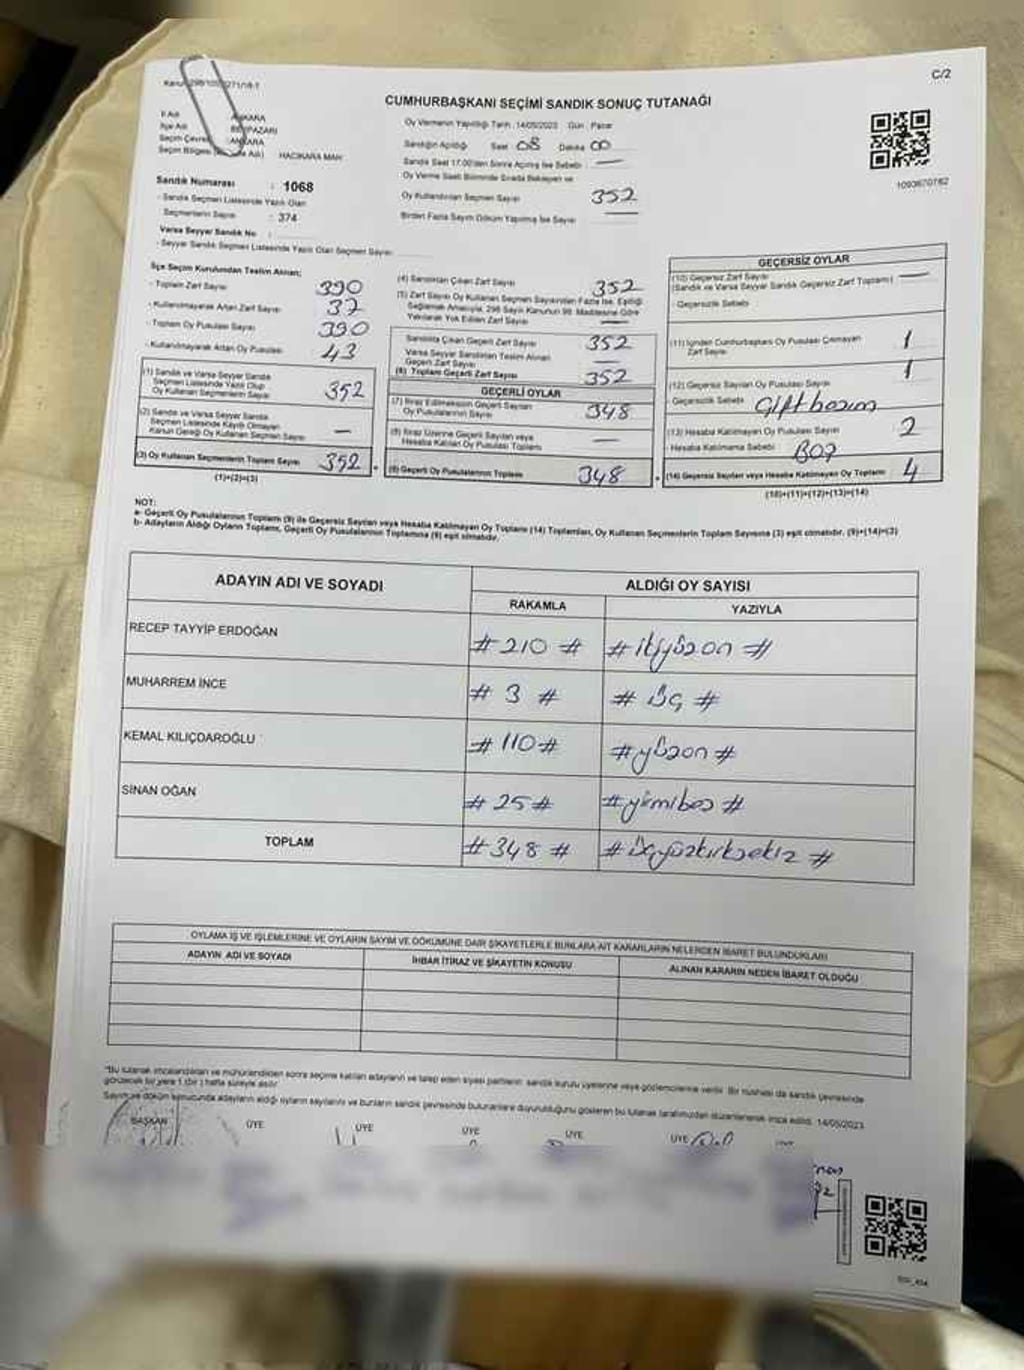 C/2
CUMHURBAŞKANI SEÇİMİ SANDIK SONUÇ TUTANAĞI
İl Adı ANKARA
İlçe Adı
Seçim Çevresi ANKARA
Seçim Bölgesi HACIKARA MAH
Sandık Numarası : 1068
- Sandık Seçmen Listesinde Yazılı Olan
Seçmenlerin Sayısı : 374
Varsa Seyyar Sandık No :
- Seyyar Sandık Seçmen Listesinde Yazılı Olan Seçmen Sayısı:
Oy Vermenin Yapıldığı Tarih :14/05/2023 Gün : Pazar
Sandığın Açıldığı Saat 08 Dakika 00
Sandık Saat 17.00'den Sonra Açılmış İse Sebebi :
Oy Verme Saati Bitiminde Sırada Bekleyen ve
Oy Kullandırılan Seçmen Sayısı 352
Birden Fazla Sayım Döküm Yapılmış İse Sayısı
1093670782
İlçe Seçim Kurulundan Teslim Alınan;
- Toplam Zarf Sayısı 390
- Kullanılmayarak Artan Zarf Sayısı 37
- Toplam Oy Pusulası Sayısı 390
- Kullanılmayarak Artan Oy Pusulası 43
(1) Sandık ve Varsa Seyyar Sandık
Seçmen Listesinde Yazılı Olup
Oy Kullanan Seçmenlerin Sayısı 352
(2) Sandık ve Varsa Seyyar Sandık
Seçmen Listesinde Kayıtlı Olmayan
Kanun Gereği Oy Kullanan Seçmen Sayısı —
(3) Oy Kullanan Seçmenlerin Toplam Sayısı 352
(1)+(2)=(3)
(4) Sandıktan Çıkan Zarf Sayısı 352
(5) Zarf Sayısı Oy Kullanan Seçmen Sayısından Fazla İse, Eşitliği
Sağlamak Amacıyla, 298 Sayılı Kanunun 98. Maddesine Göre
Yakılarak Yok Edilen Zarf Sayısı —
Sandıkta Çıkan Geçerli Zarf Sayısı 352
Varsa Seyyar Sandıktan Teslim Alınan
Geçerli Zarf Sayısı —
(6) Toplam Geçerli Zarf Sayısı 352
GEÇERLİ OYLAR
(7) İtiraz Edilmeksizin Geçerli Sayılan
Oy Pusulalarının Sayısı 348
(8) İtiraz Üzerine Geçerli Sayılan veya
Hesaba Katılan Oy Pusulası Toplamı —
(9) Geçerli Oy Pusulalarının Toplamı 348
GEÇERSİZ OYLAR
(10) Geçersiz Zarf Sayısı —
(Sandık ve Varsa Seyyar Sandık Geçersiz Zarf Toplamı)
- Geçersizlik Sebebi :
(11) İçinden Cumhurbaşkanı Oy Pusulası Çıkmayan
Zarf Sayısı 1
(12) Geçersiz Sayılan Oy Pusulası Sayısı 1
- Geçersizlik Sebebi
(13) Hesaba Katılmayan Oy Pusulası Sayısı 2
- Hesaba Katılmama Sebebi
(14) Geçersiz Sayılan veya Hesaba Katılmayan Oy Toplamı 4
(10)+(11)+(12)+(13)=(14)
NOT:
a- Geçerli Oy Pusulalarının Toplamı (9) ile Geçersiz Sayılan veya Hesaba Katılmayan Oy Toplamı (14) Toplamları, Oy Kullanan Seçmenlerin Toplam Sayısına (3) eşit olmalıdır. (9)+(14)=(3)
b- Adayların Aldığı Oyların Toplamı, Geçerli Oy Pusulalarının Toplamına (9) eşit olmalıdır.
ADAYIN ADI VE SOYADI ALDIĞI OY SAYISI
RAKAMLA YAZIYLA
RECEP TAYYİP ERDOĞAN # 210 # # ikiyüzon #
MUHARREM İNCE # 3 # # üç #
KEMAL KILIÇDAROĞLU # 110 # # yüzon #
SİNAN OĞAN # 25 # # yirmibeş #
TOPLAM # 348 # # üçyüzkırksekiz #
OYLAMA İŞ VE İŞLEMLERİNE VE OYLARIN SAYIM VE DÖKÜMÜNE DAİR ŞİKAYETLERLE BUNLARA AİT KARARLARIN NELERDEN İBARET BULUNDUKLARI
ADAYIN ADI VE SOYADI İHBAR İTİRAZ VE ŞİKAYETİN KONUSU ALINAN KARARIN NEDEN İBARET OLDUĞU
"Bu tutanak imzalandıktan ve mühürlendikten sonra seçime katılan adayların ve talep eden siyasi partilerin sandık kurulu üyelerine veya gözlemcilerine verilir. Bir nüshası da sandık çevresinde
görülecek bir yere 1 (bir) hafta süreyle asılır.
Sayım ve döküm sonucunda adayların aldığı oyların sayılarını ve bunların sandık çevresinde bulunanlara duyurulduğunu gösteren bu tutanak tarafımızdan düzenlenerek imza edildi. 14/05/2023
BAŞKAN ÜYE ÜYE ÜYE ÜYE ÜYE